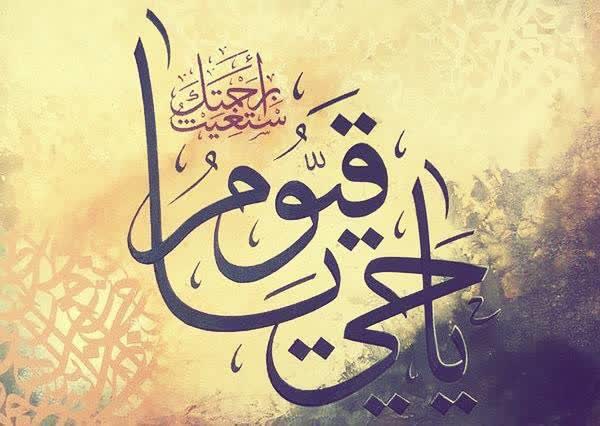 يا حَيُّ يا قَيُّومُ
برحمتك أستغيث